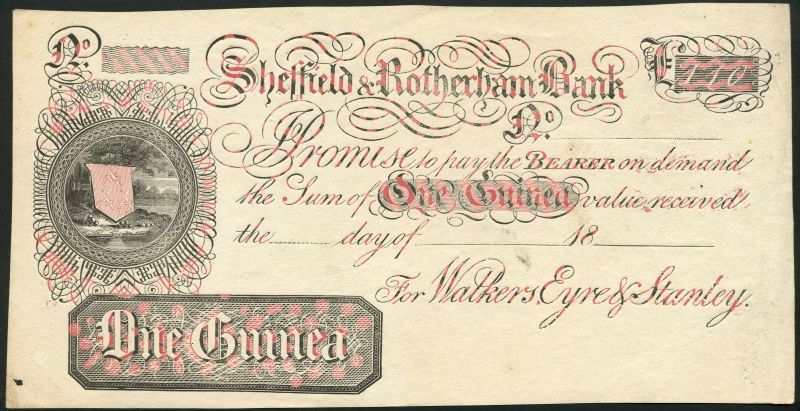 No.
Sheffield & Rotherham Bank
£ 110
No.
I Promise to pay the BEARER on demand
the Sum of One Guinea value received
the day of 18
For Walkers, Eyre & Stanley.
One Guinea